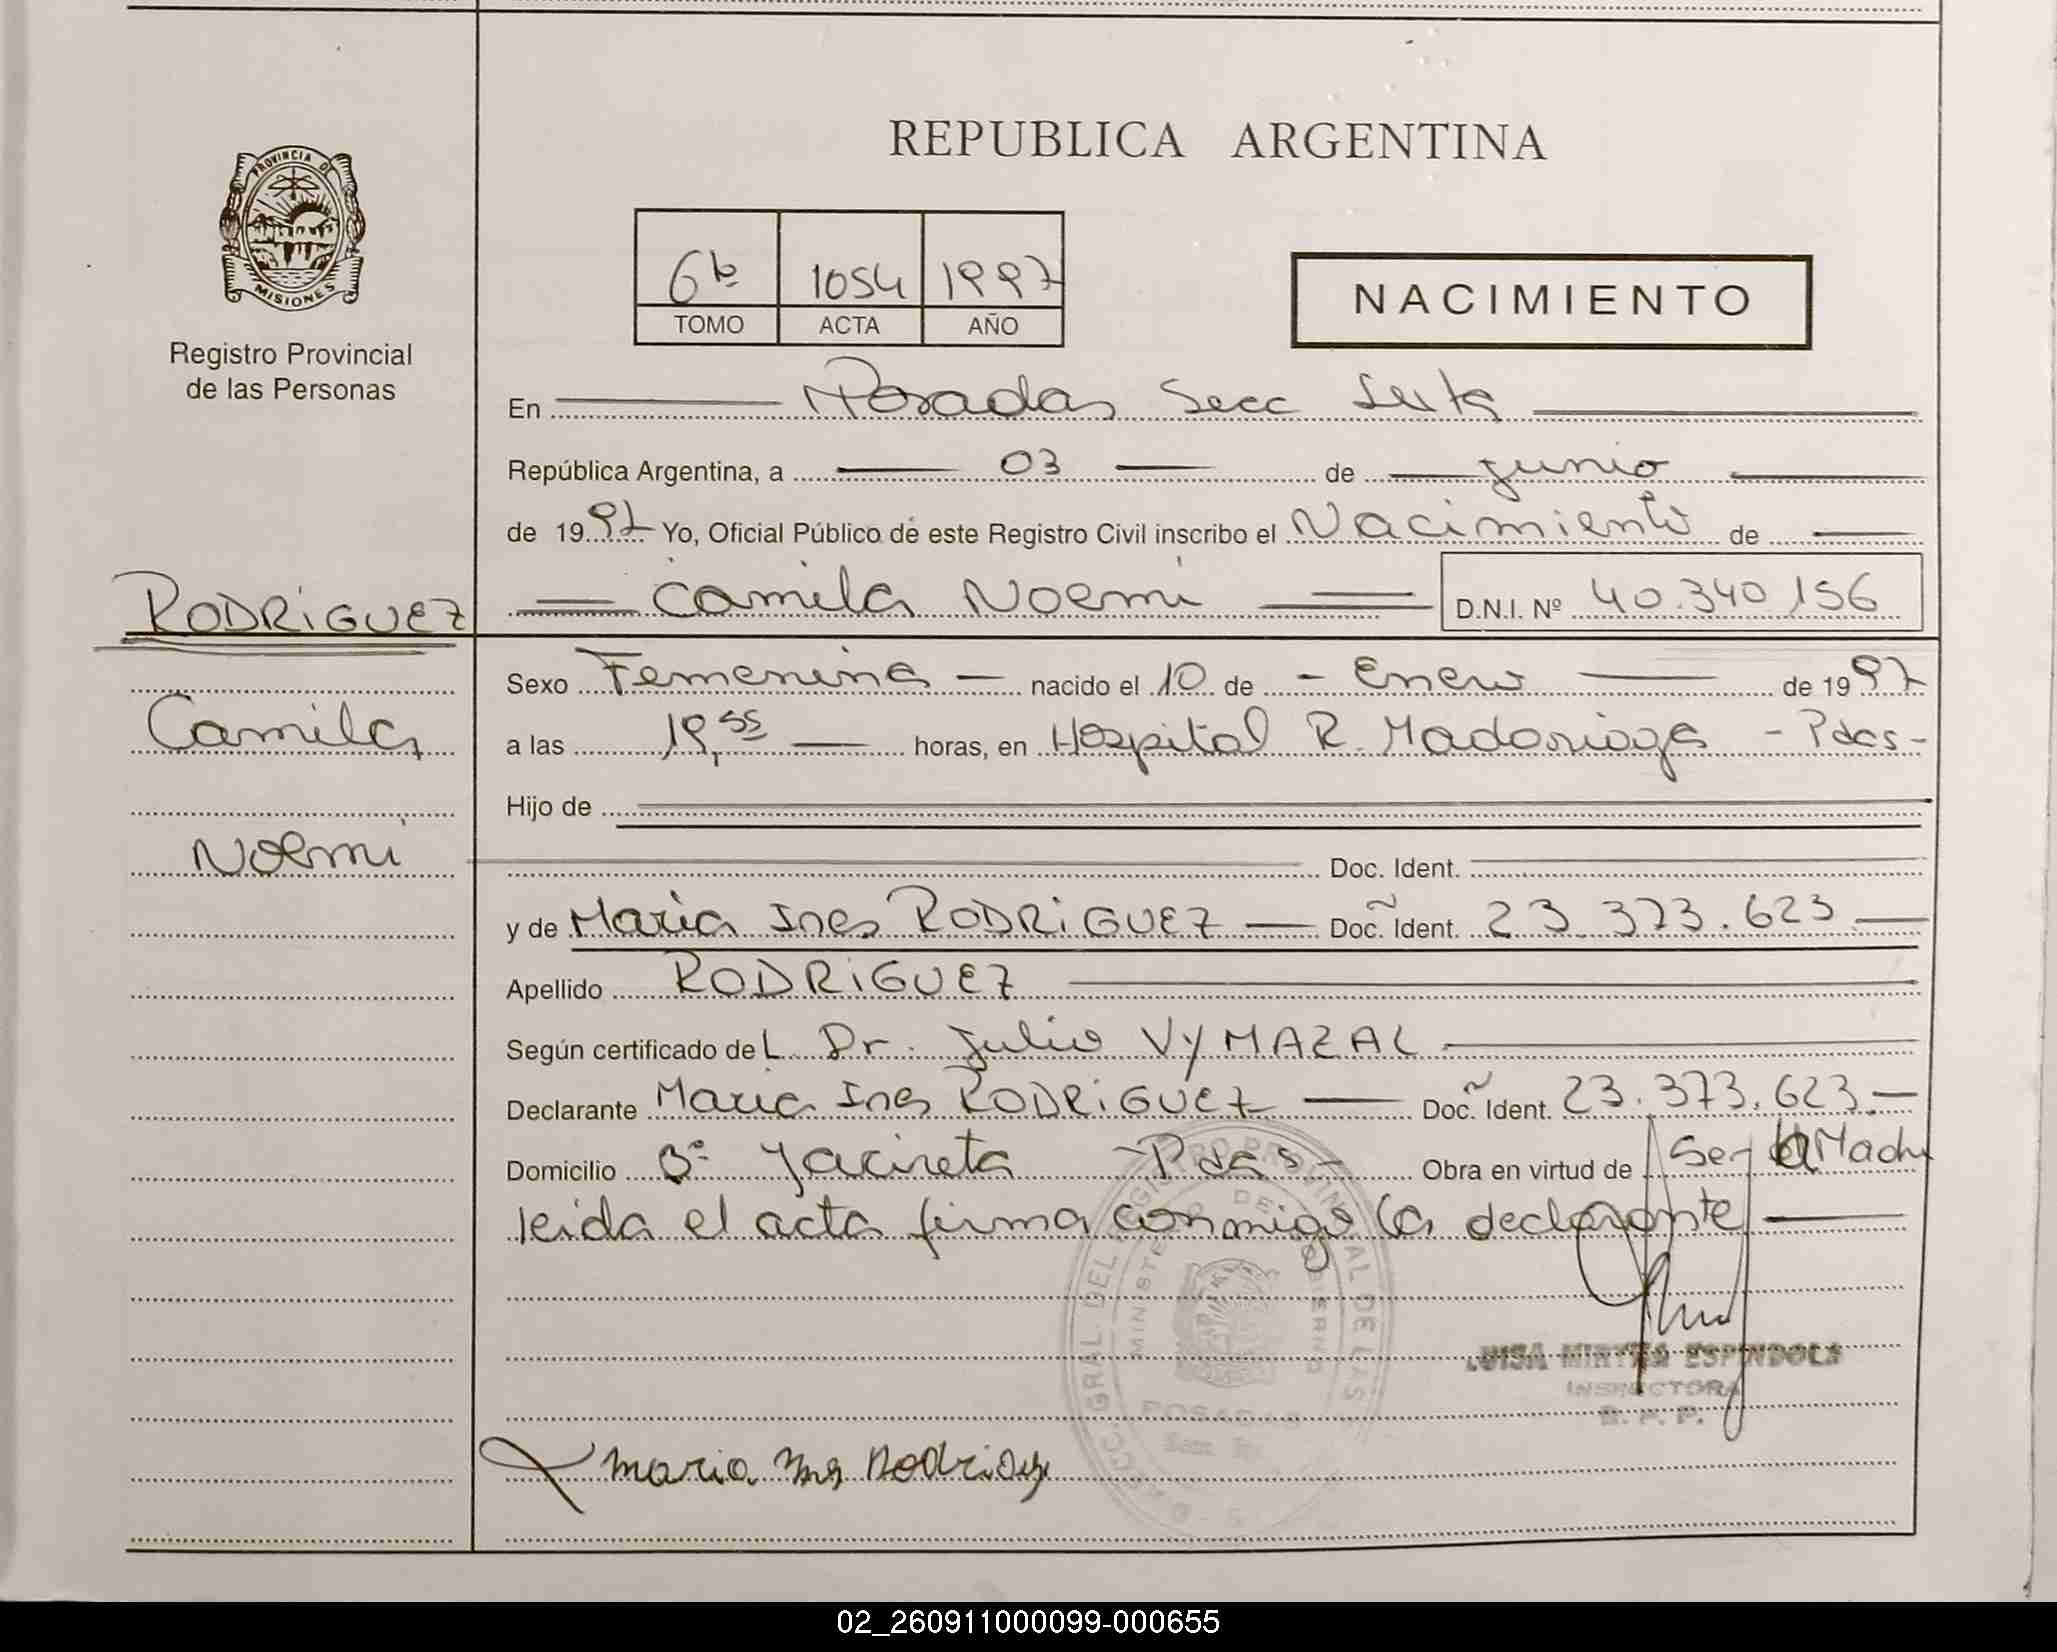 REPUBLICA ARGENTINA
PROVINCIA DE
MISIONES
Registro Provincial
de las Personas
6to 1054 1997
TOMO ACTA AÑO
NACIMIENTO
En Posadas Secc Sexta
República Argentina, a 03 de junio
de 1997 Yo, Oficial Público de este Registro Civil inscribo el Nacimiento de
Camila Noemi D.N.I. Nº 40.340.156
RODRIGUEZ
Camila
Noemi
Sexo Femenina nacido el 10 de Enero de 1997
a las 19,55 horas, en Hospital R. Madariaga - Pdas-
Hijo de
Doc. Ident.
y de Maria Ines RODRIGUEZ Doc. Ident. 23.373.623
Apellido RODRIGUEZ
Según certificado del Dr. Julio VYMAZAL
Declarante Maria Ines RODRIGUEZ Doc. Ident. 23.373.623
Domicilio Bº Yacireta -Pdas- Obra en virtud de Ser la Madre
leida el acta firma conmigo la declarante
DIRECC. GRAL. DEL REGISTRO PROVINCIAL DE LAS
MINISTERIO DE GOBIERNO
POSADAS
LUISA MIRTHA ESPINDOLA
INSPECTORA
R. P. P.
Maria Ines Rodriguez
02_260911000099-000655